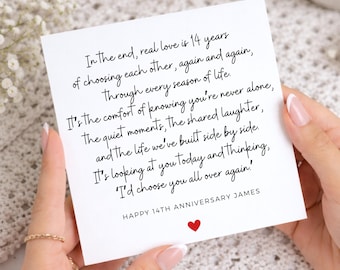 In the end, real love is 14 years
of choosing each other, again and again,
through every season of life.
It's the comfort of knowing you're never alone,
the quiet moments, the shared laughter,
and the life we've built side by side.
It's looking at you today and thinking,
'I'd choose you all over again.'
HAPPY 14TH ANNIVERSARY JAMES